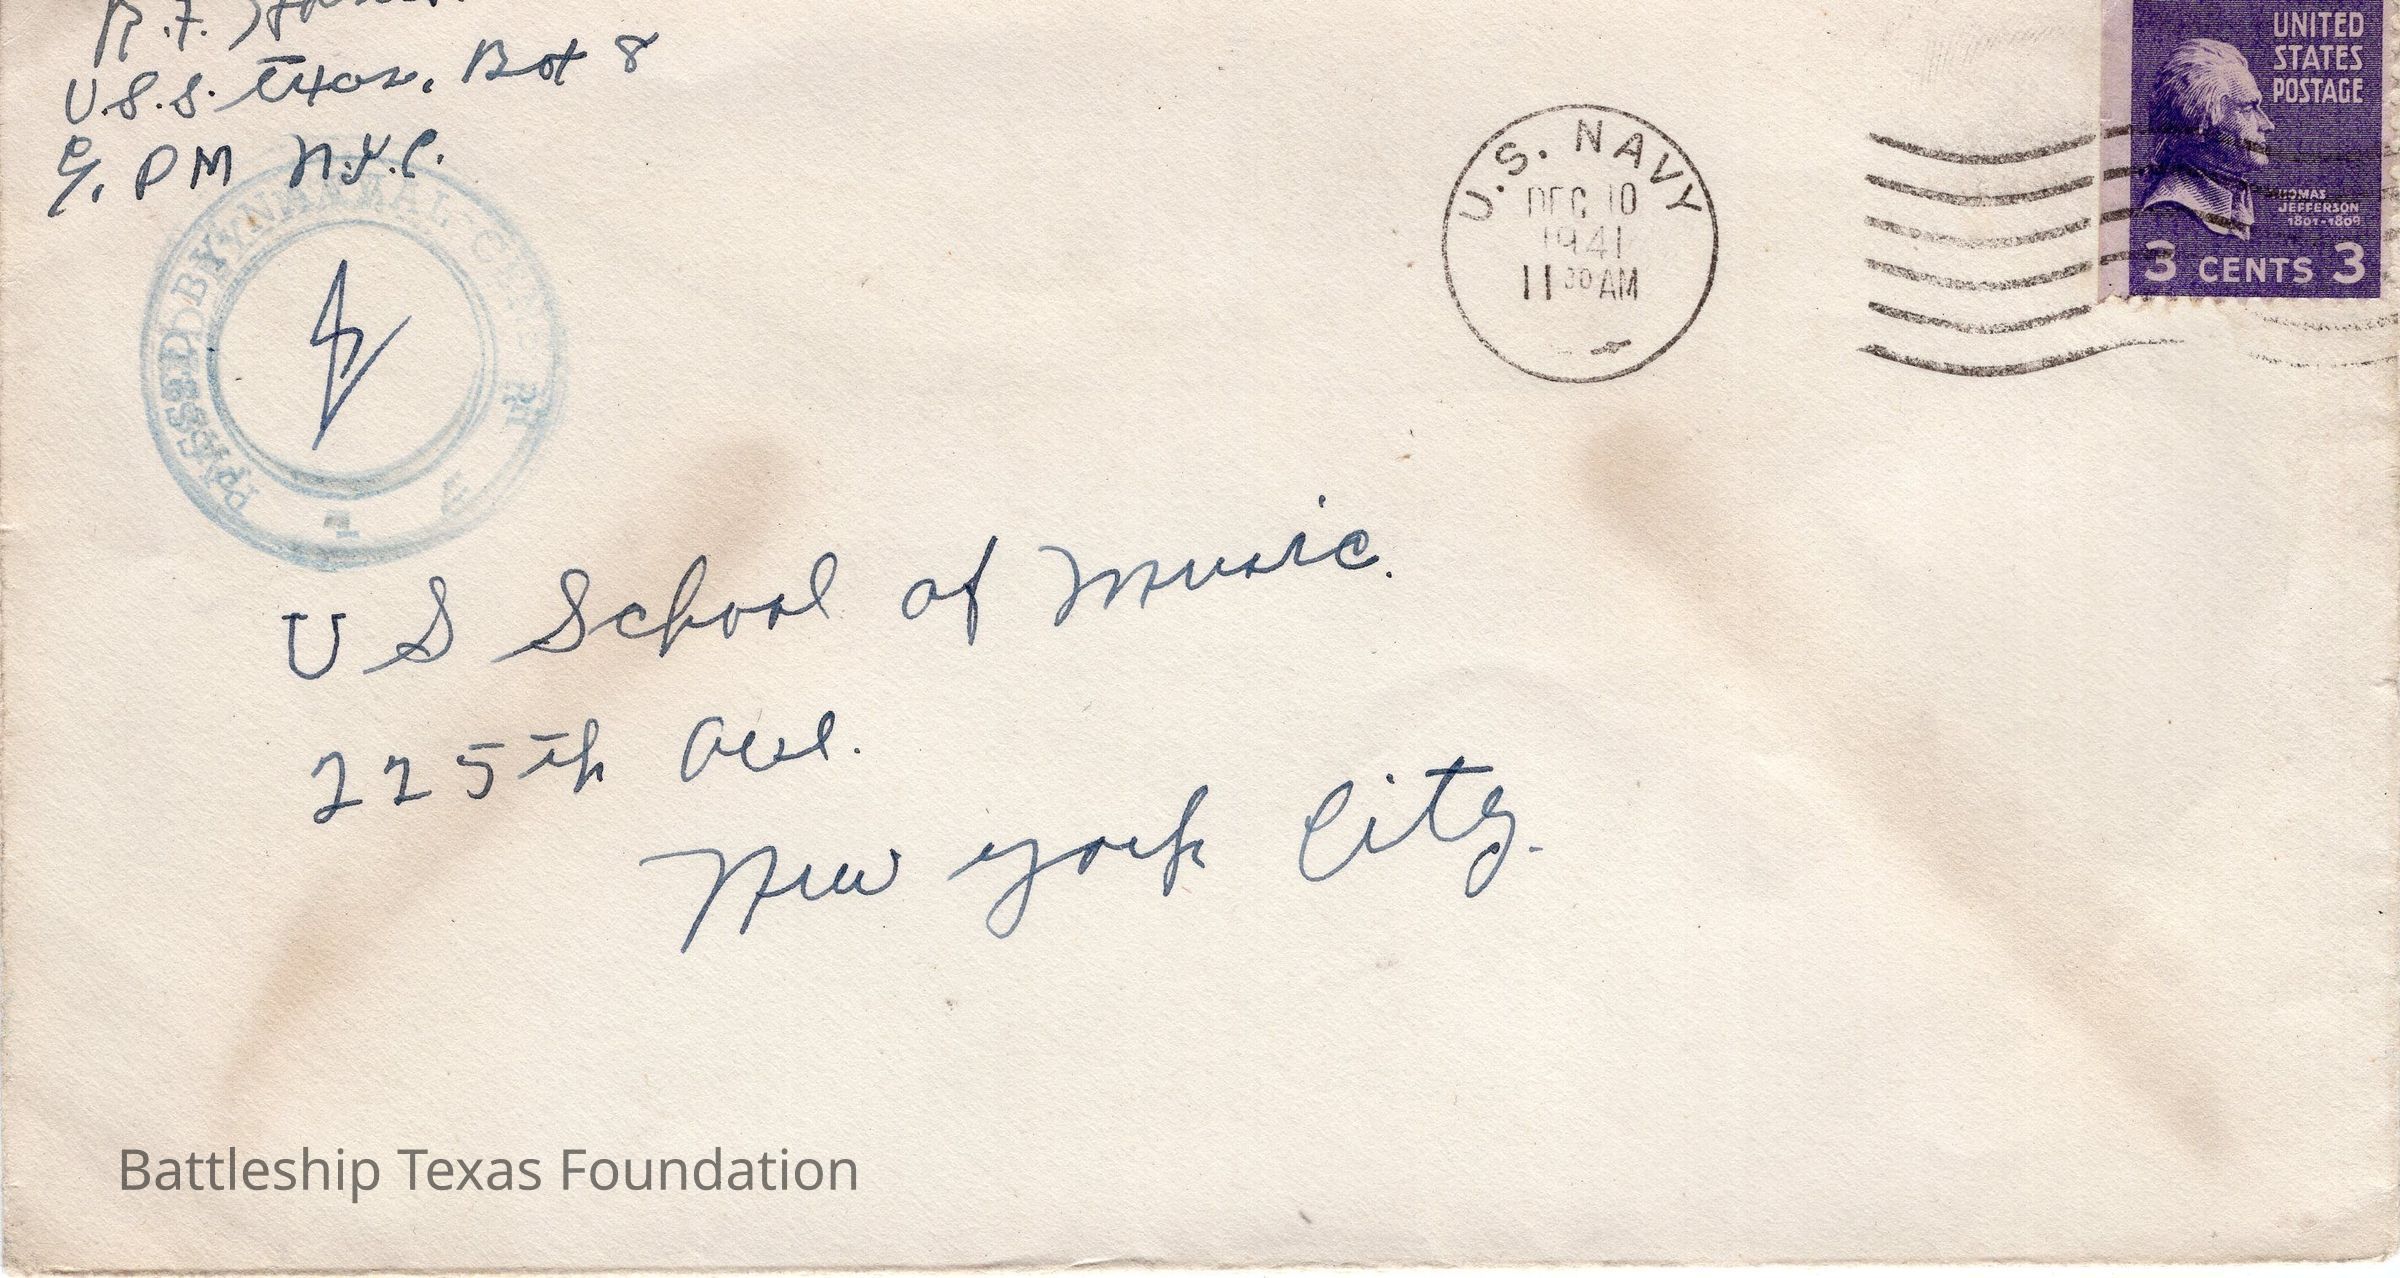 R.F.
U.S.S. Texas, Bat 8
c/o PM N.Y.C.
PASSED BY NAVAL CENSOR
U.S. NAVY
DEC 10
1941
11 30 AM
UNITED
STATES
POSTAGE
THOMAS
JEFFERSON
1801-1809
3 CENTS 3
U S School of Music.
225th Ave.
New York City.
Battleship Texas Foundation